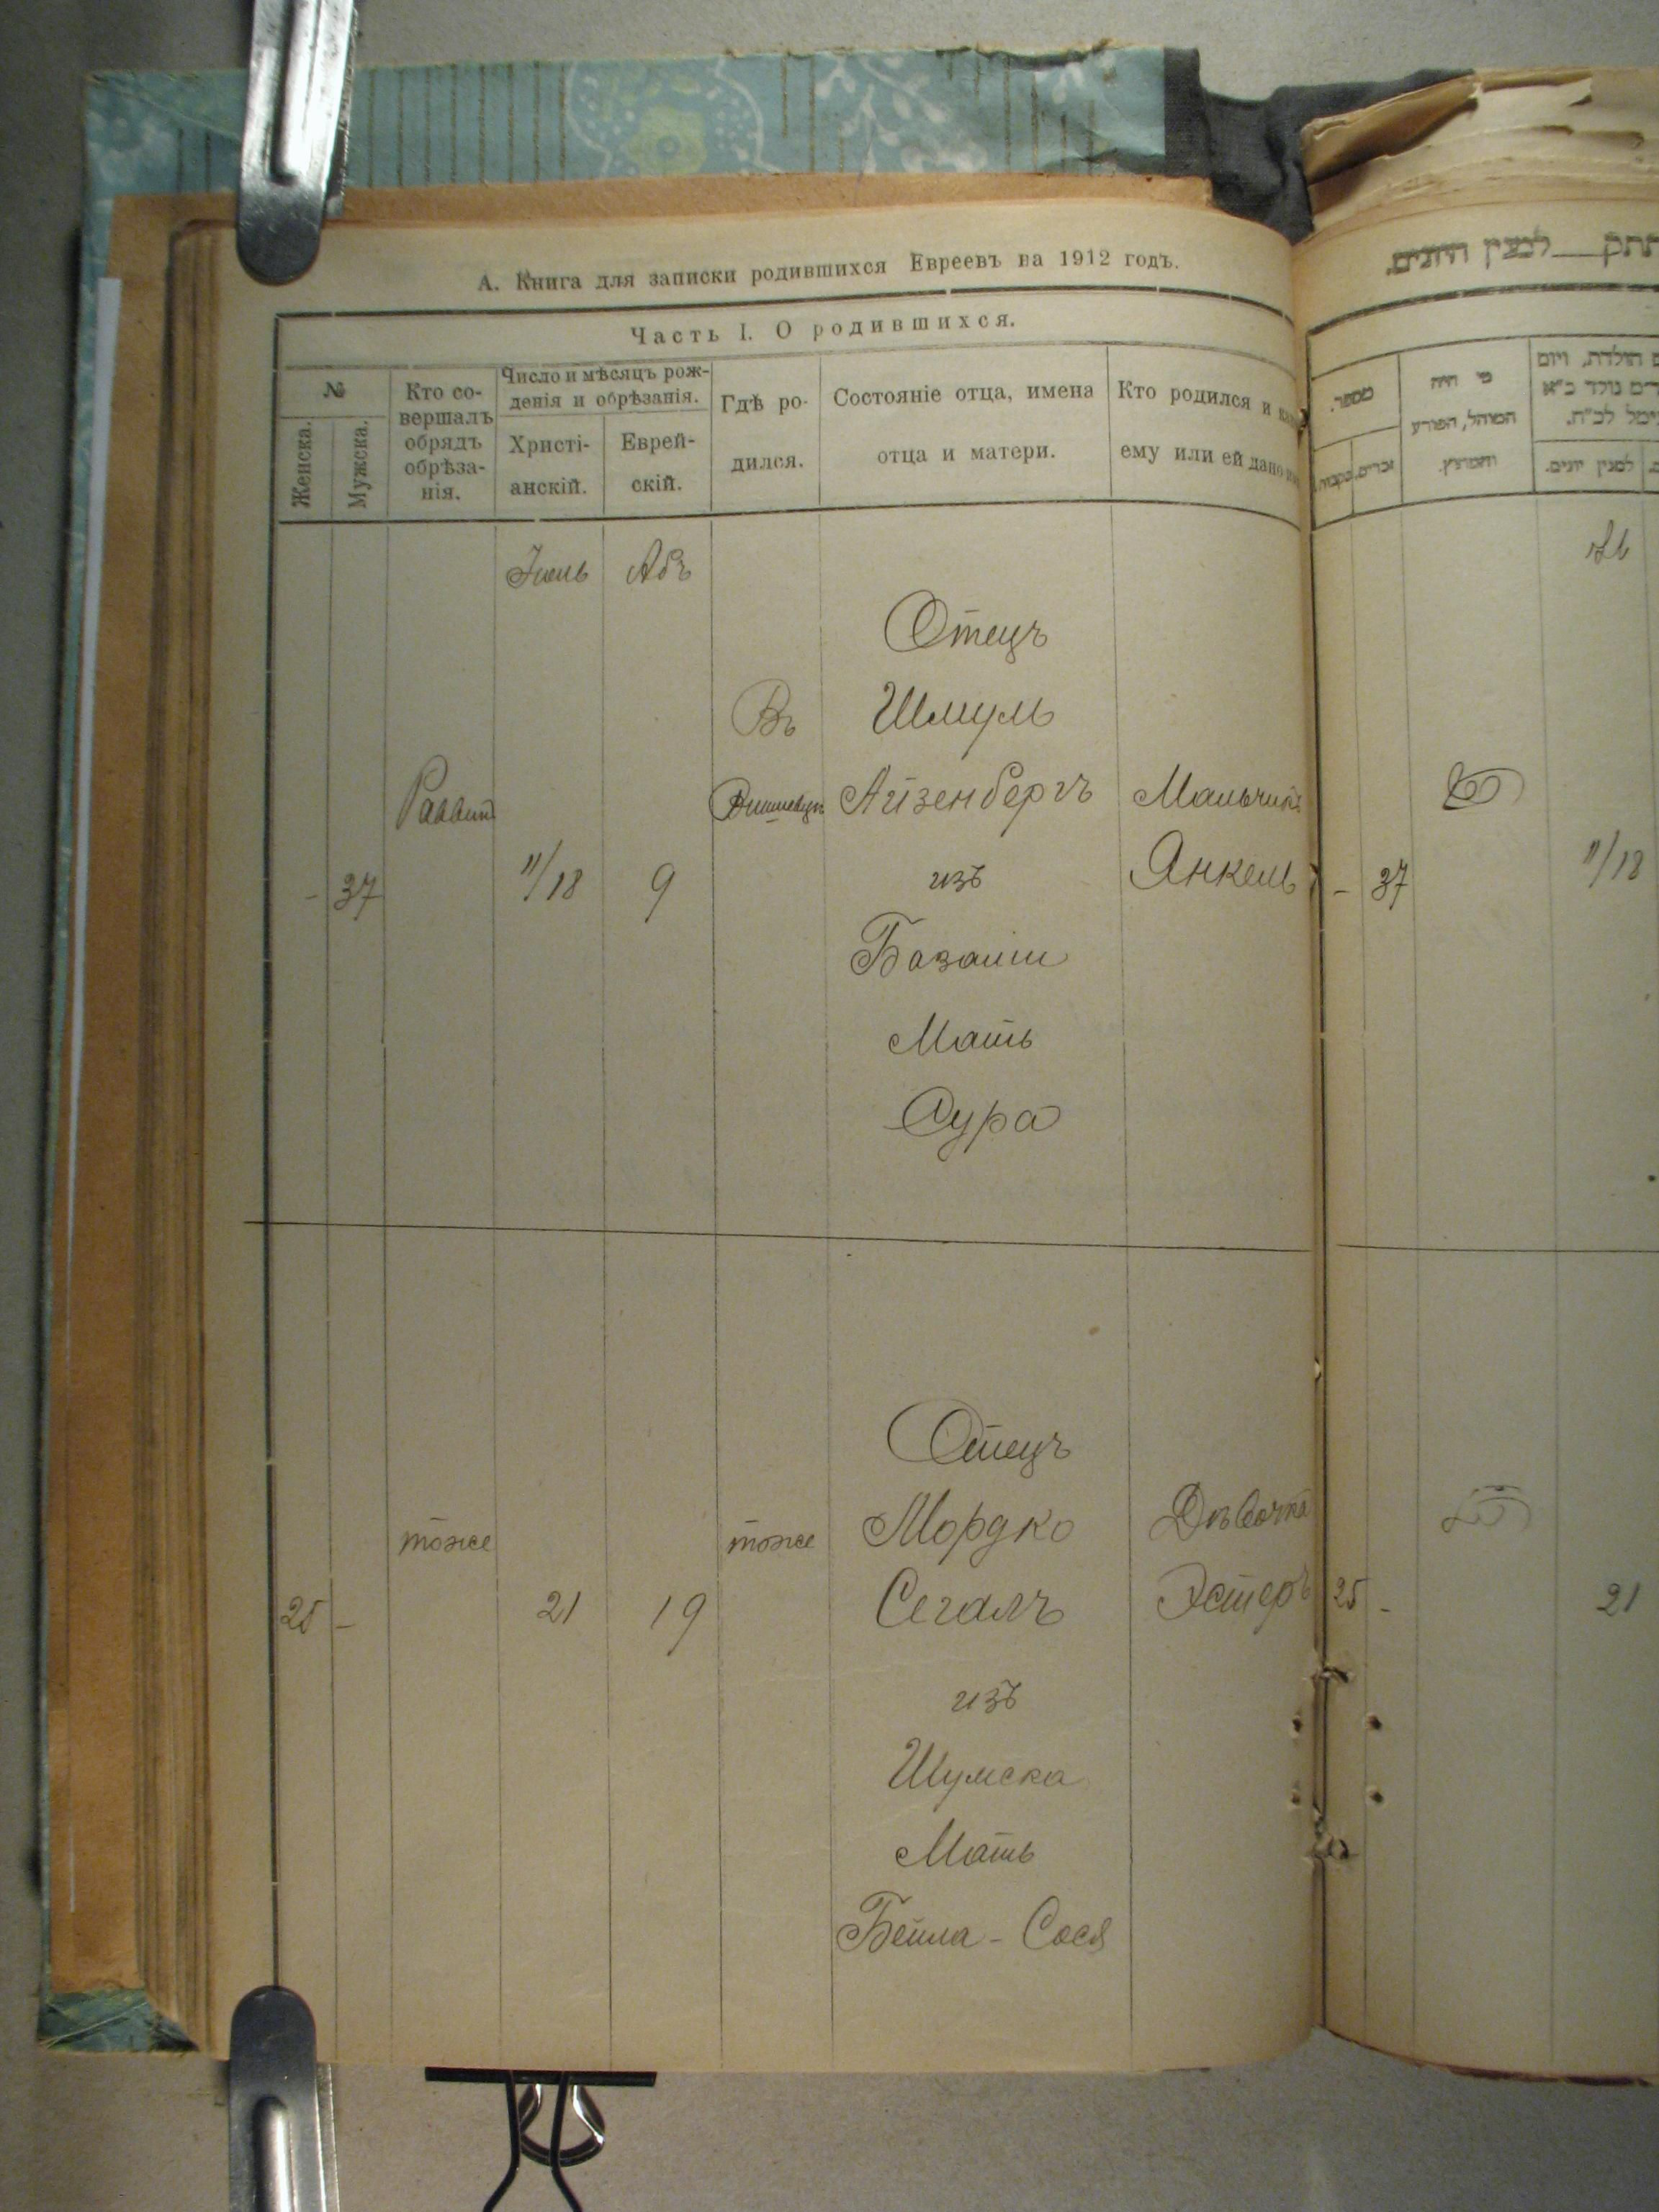 А. Книга для записки родившихся Евреевъ на 1912 годъ.
Часть I. О родившихся.
№
Женска.
Мужска.
Кто со-
вершалъ
обрядъ
обрѣза-
нія.
Число и мѣсяцъ рож-
денія и обрѣзанія.
Христі-
анскій.
Еврей-
скій.
Гдѣ ро-
дился.
Состояніе отца, имена
отца и матери.
Кто родился и
ему или ей дано
Іюль
Абъ
- 37
Раввин
11/18
9
Въ
Отецъ
Шмуль
Айзенбергъ
изъ
Базалии
Мать
Сура
Мальчикъ
Янкель
25 -
тоже
21
19
тоже
Отецъ
Мордко
Сегалъ
изъ
Шумска
Мать
Бейла - Сося
Дѣвочка
Эстеръ
למנין היונים.
מספר.
זכרים.
מי היה
המוהל, הפורע
והמוצץ.
למנין יונים.
- 37
11/18
25 -
21